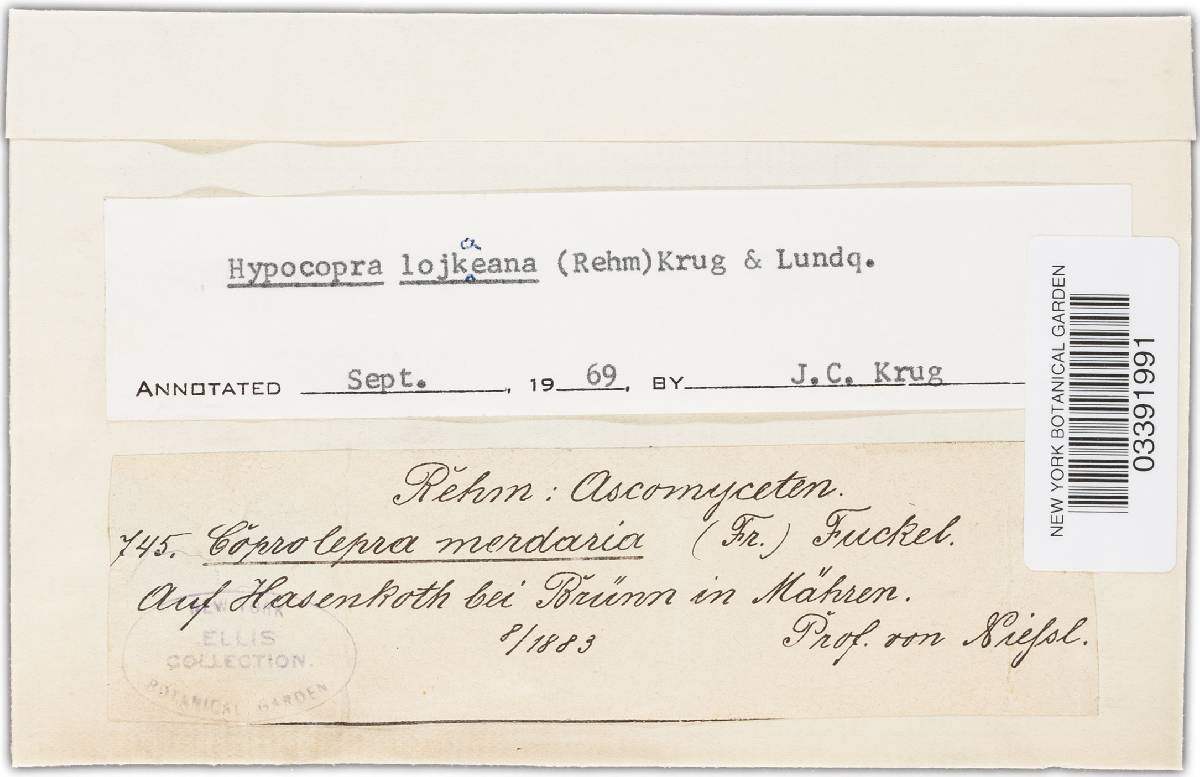 Hypocopra lojkaeana (Rehm)Krug & Lundq.
ANNOTATED Sept., 19 69, BY J.C. Krug
NEW YORK BOTANICAL GARDEN
03391991
Rehm: Ascomyceten.
745. Coprolepra merdaria (Fr.) Fuckel.
Auf Hasenkoth bei Brünn in Mähren.
8/1883 Prof. von Nießl.
NEW YORK
ELLIS
COLLECTION.
BOTANICAL GARDEN